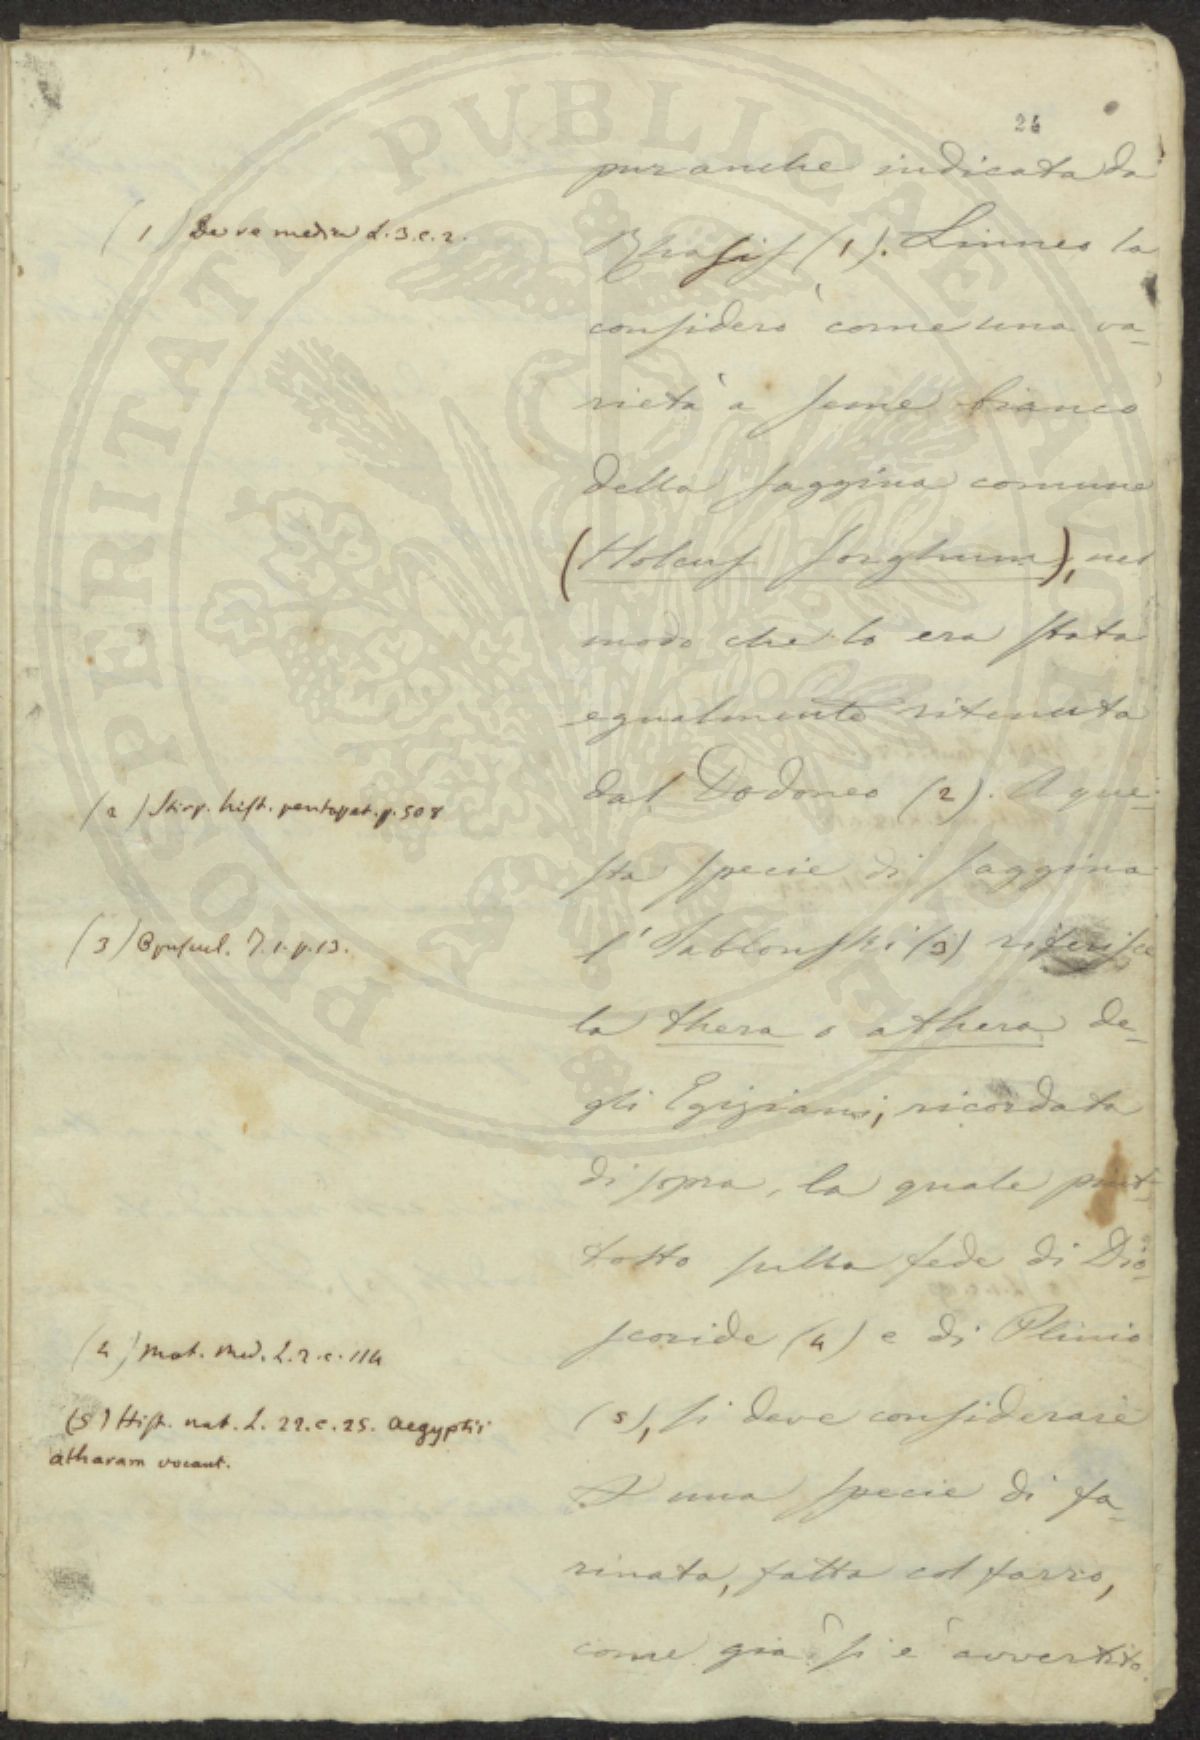 26
pur anche indicata da
(1) De re medica L. 3. c. 2.
Rhasis (1). Linneo la
considerò come una va-
rietà a seme bianco
della saggina comune
(Holcus Sorghum), nel
modo che lo era stata
egualmente ritenuta
dal Dodoneo (2). A que-
(2) Stirp. hist. pentapt. p. 508
sta specie di saggina
(3) Opuscul. T. 1. p. 13.
l'Jablonski (3) riferisce
la thera o athera de-
gli Egiziani, ricordata
di sopra, la quale piut-
tosto sulla fede di Dio-
scoride (4) e di Plinio
(4) Mat. Med. L. 2. c. 114
(5), si deve considerare
(5) Hist. nat. L. 22. c. 25. Aegyptii
atharam vocant.
una specie di fa-
rinata, fatta col farro,
come già si è avvertito.
PROSPERITATI PUBLICAE AUGENDAE